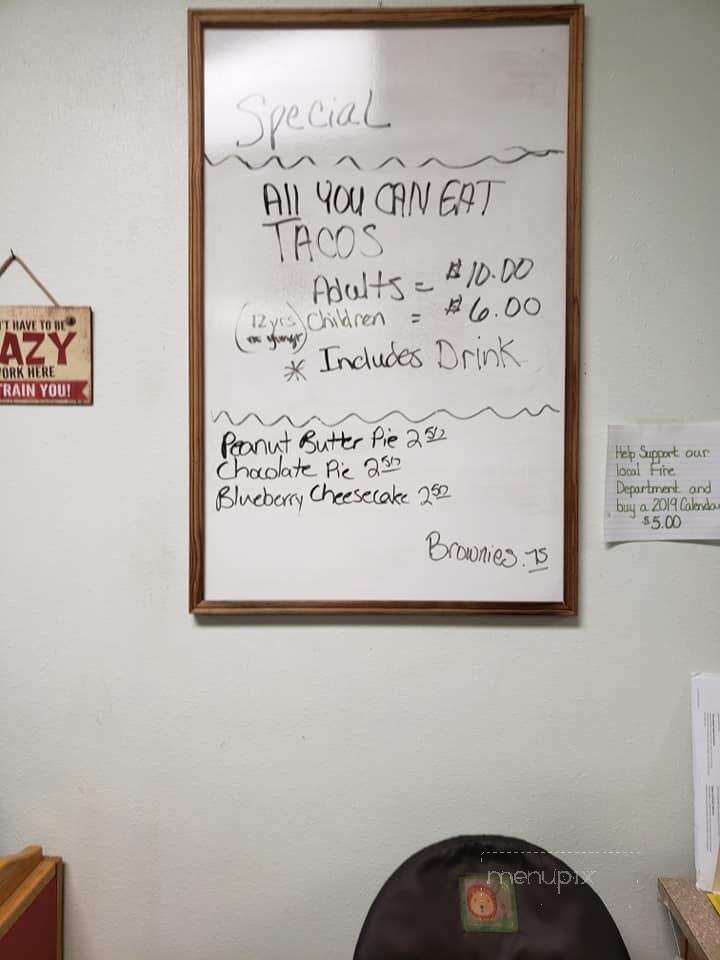 Special
All YOU CAN EAT
TACOS
Adults = $10.00
(12yrs or younger) Children = $6.00
* Includes Drink
Peanut Butter Pie 2 50
Chocolate Pie 2 50
Blueberry Cheesecake 2 50
Brownies .75
'T HAVE TO BE
AZY
ORK HERE
TRAIN YOU!
Help Support our
local Fire
Department and
buy a 2019 Calendar
$5.00
menupix